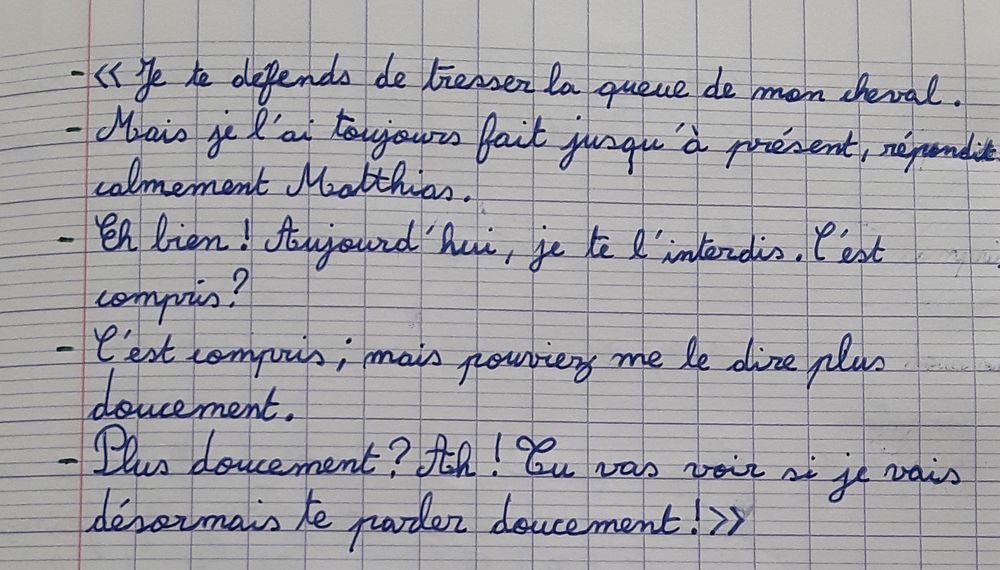 - « Je te defends de tresser la queue de mon cheval.
- Mais je l'ai toujours fait jusqu'à présent, répondit
calmement Matthias.
- Eh bien ! Aujourd'hui, je te l'interdis. C'est
compris ?
- C'est compris ; mais pouviez me le dire plus
doucement.
- Plus doucement ? Ah ! Tu vas voir si je vais
désormais te parler doucement ! »